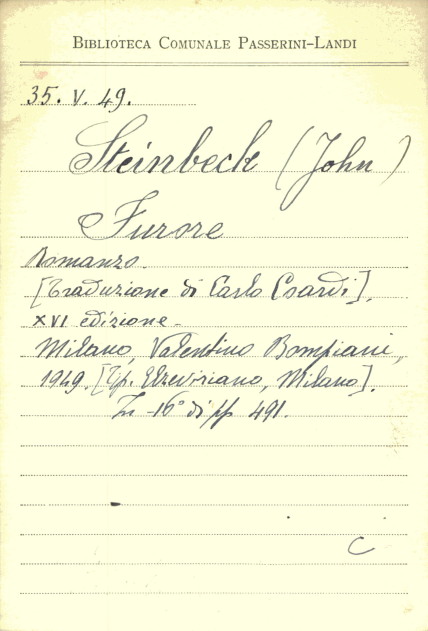 BIBLIOTECA COMUNALE PASSERINI-LANDI
35. V. 49.
Steinbeck (John)
Furore
Romanzo.
[Traduzione di Carlo Coardi].
XVI edizione -
Milano, Valentino Bompiani,
1949. [Tip. Elzeviriano, Milano].
In -16° di pp 491.
C